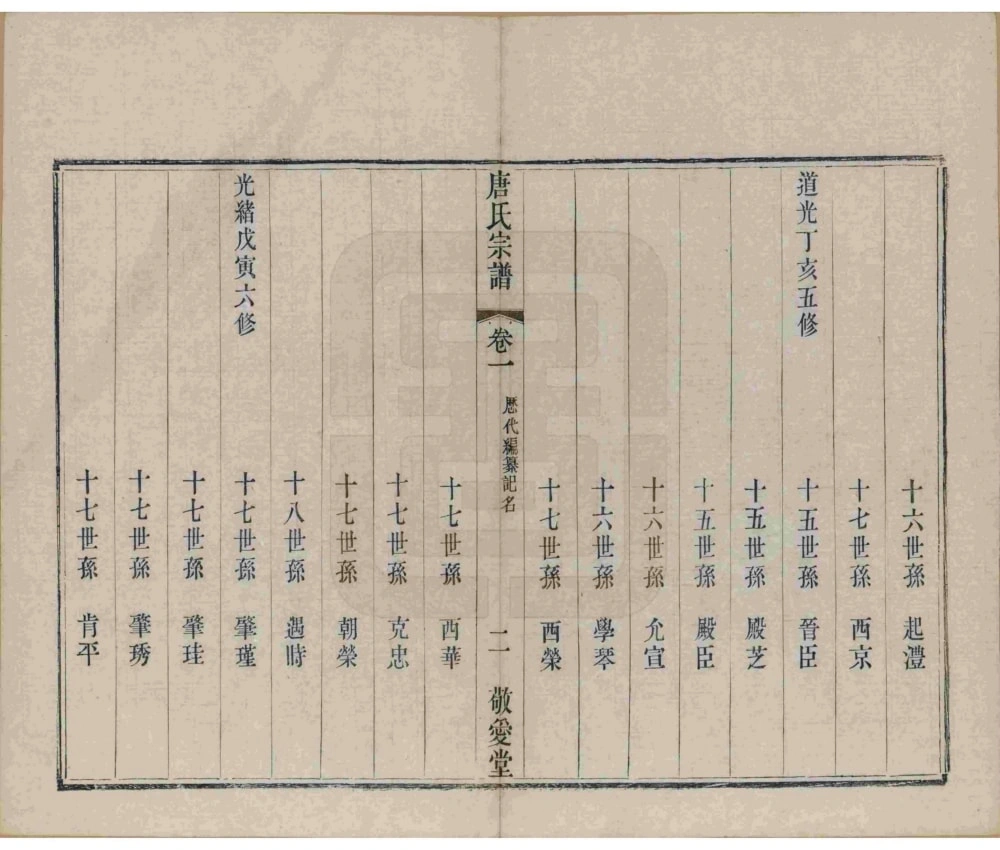 十六世孫 起澧
十七世孫 西京
道光丁亥五修 十五世孫 晉臣
十五世孫 殿芝
十五世孫 殿臣
十六世孫 允宣
十六世孫 學琴
十七世孫 西榮
唐氏宗譜 卷一 歷代編纂記名 二 敬愛堂
十七世孫 西華
十七世孫 克忠
十七世孫 朝榮
十八世孫 遇時
光緒戊寅六修 十七世孫 肇瑾
十七世孫 肇珪
十七世孫 肇琇
十七世孫 肯平